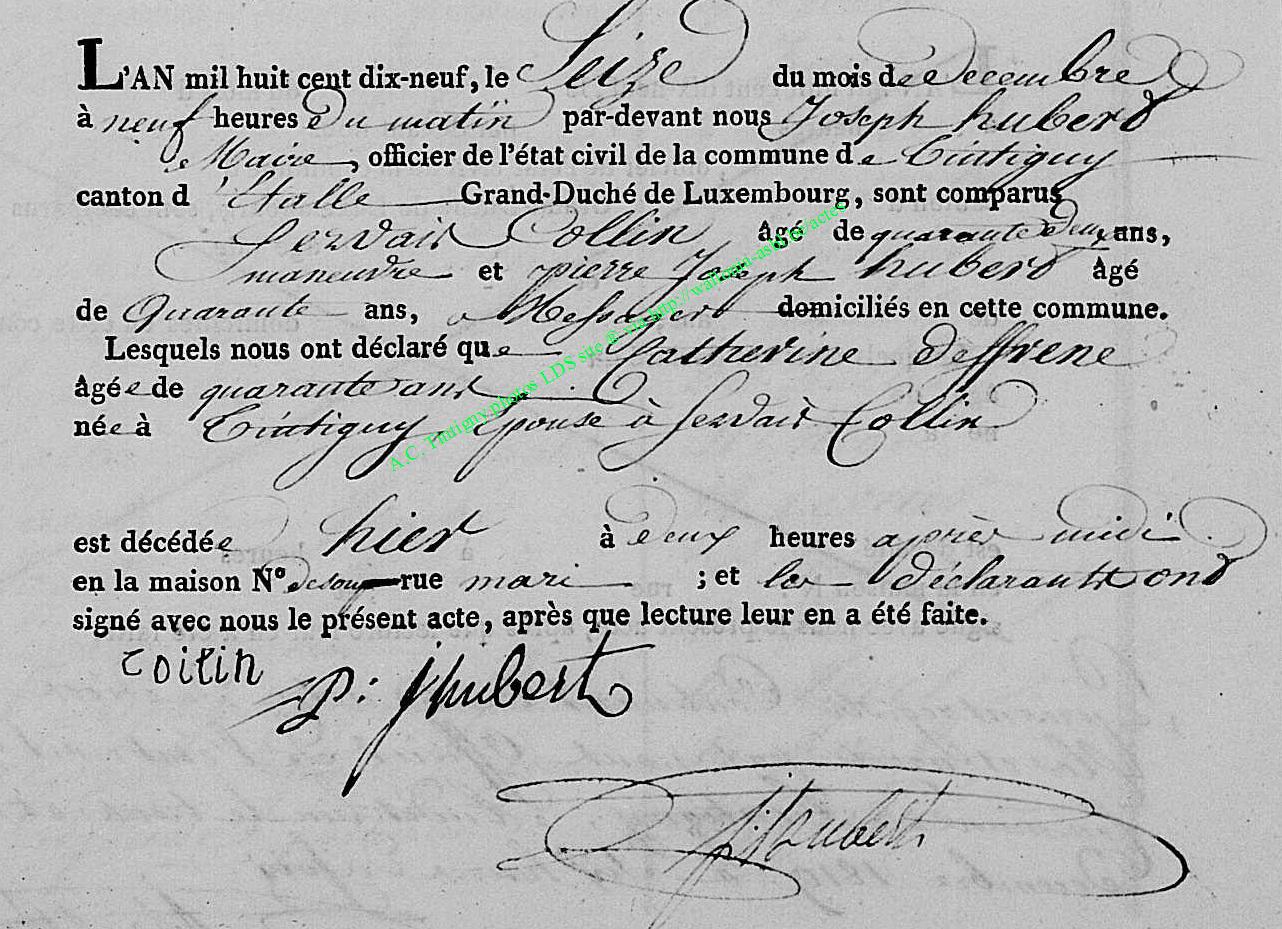 L'AN mil huit cent dix-neuf, le Seize du mois de Decembre
à neuf heures Du matin par-devant nous Joseph hubert
Maire, officier de l'état civil de la commune de Tintigny
canton d'Etalle Grand-Duché de Luxembourg, sont comparus
Servais Collin, âgé de quarante deux ans,
maneuvre et pierre Joseph hubert âgé
de Quarante ans, Messager domiciliés en cette commune.
Lesquels nous ont déclaré que Catherine Deffrene
âgée de quarante ans
née à Tintigny, Epouse à Servais Collin
est décédée hier à deux heures après midi
en la maison N° de son rue mari ; et les déclarants ont
signé avec nous le présent acte, après que lecture leur en a été faite.
Collin
P: jhubert
J: hubert
A.C. Tintigny photos LDS site @ via http://wallonia-asbl.be/actes